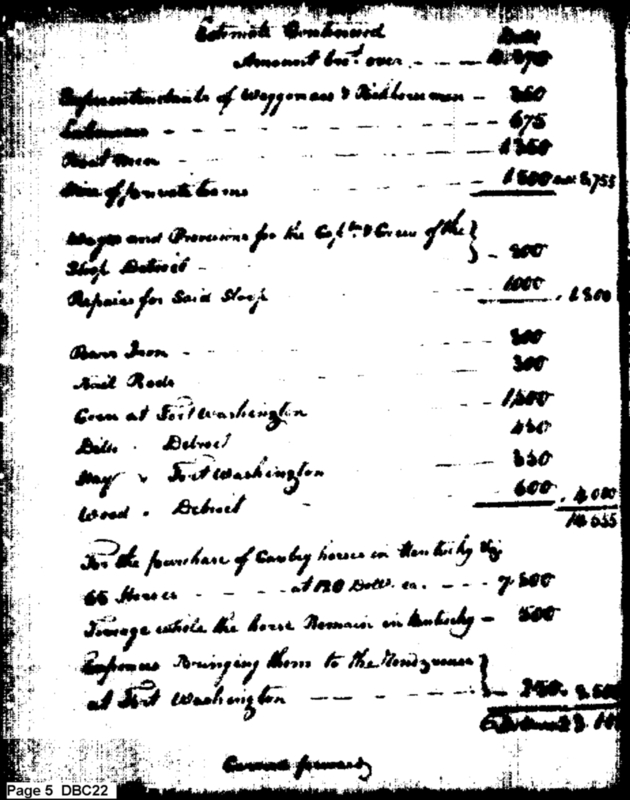 Estimate Continued
Dolls
Amount bro.t over - - -
Superintendants of Waggoners & Packhorsemen - 360
- - - - - - 675
Boat Men - - - - - 1350
Hire of private teams - - - 1500 8,755
Wages and Provisions for the Capt.n & Crew of the }
Sloop Detroit - - 800
Repairs for Said Sloop - - - 1000 . 1800
Barr Iron - - - - 800
Nail Rods - - 300
Corn at Fort Washington - - 1,500
Ditto . Detroit - 450
Hay " Fort Washington - - 350
Wood " Detroit - - 600 . 4,000
14,555
For the purchase of Cavalry horses in Kentucky Viz
65 Horses - - - - at 120 Dolls. ea. - - - 7,800
Forage while the horse Remain in Kentucky - 500
Expences Bringing them to the Rendezvouse }
at Fort Washington - - - - 250 .
Carried forward
Page 5 DBC22